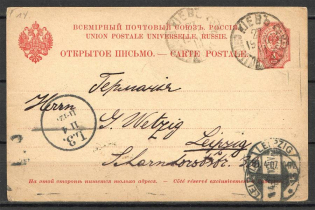 ВСЕМІРНЫЙ ПОЧТОВЫЙ СОЮЗЪ. РОССІЯ.
UNION POSTALE UNIVERSELLE. RUSSIE.
ОТКРЫТОЕ ПИСЬМО. — CARTE POSTALE.
КІЕВЪ
Германія
Herrn
G. Wetzig
Leipzig
LEIPZIG
На этой сторонѣ пишется только адресъ. — Côté réservé exclusivement